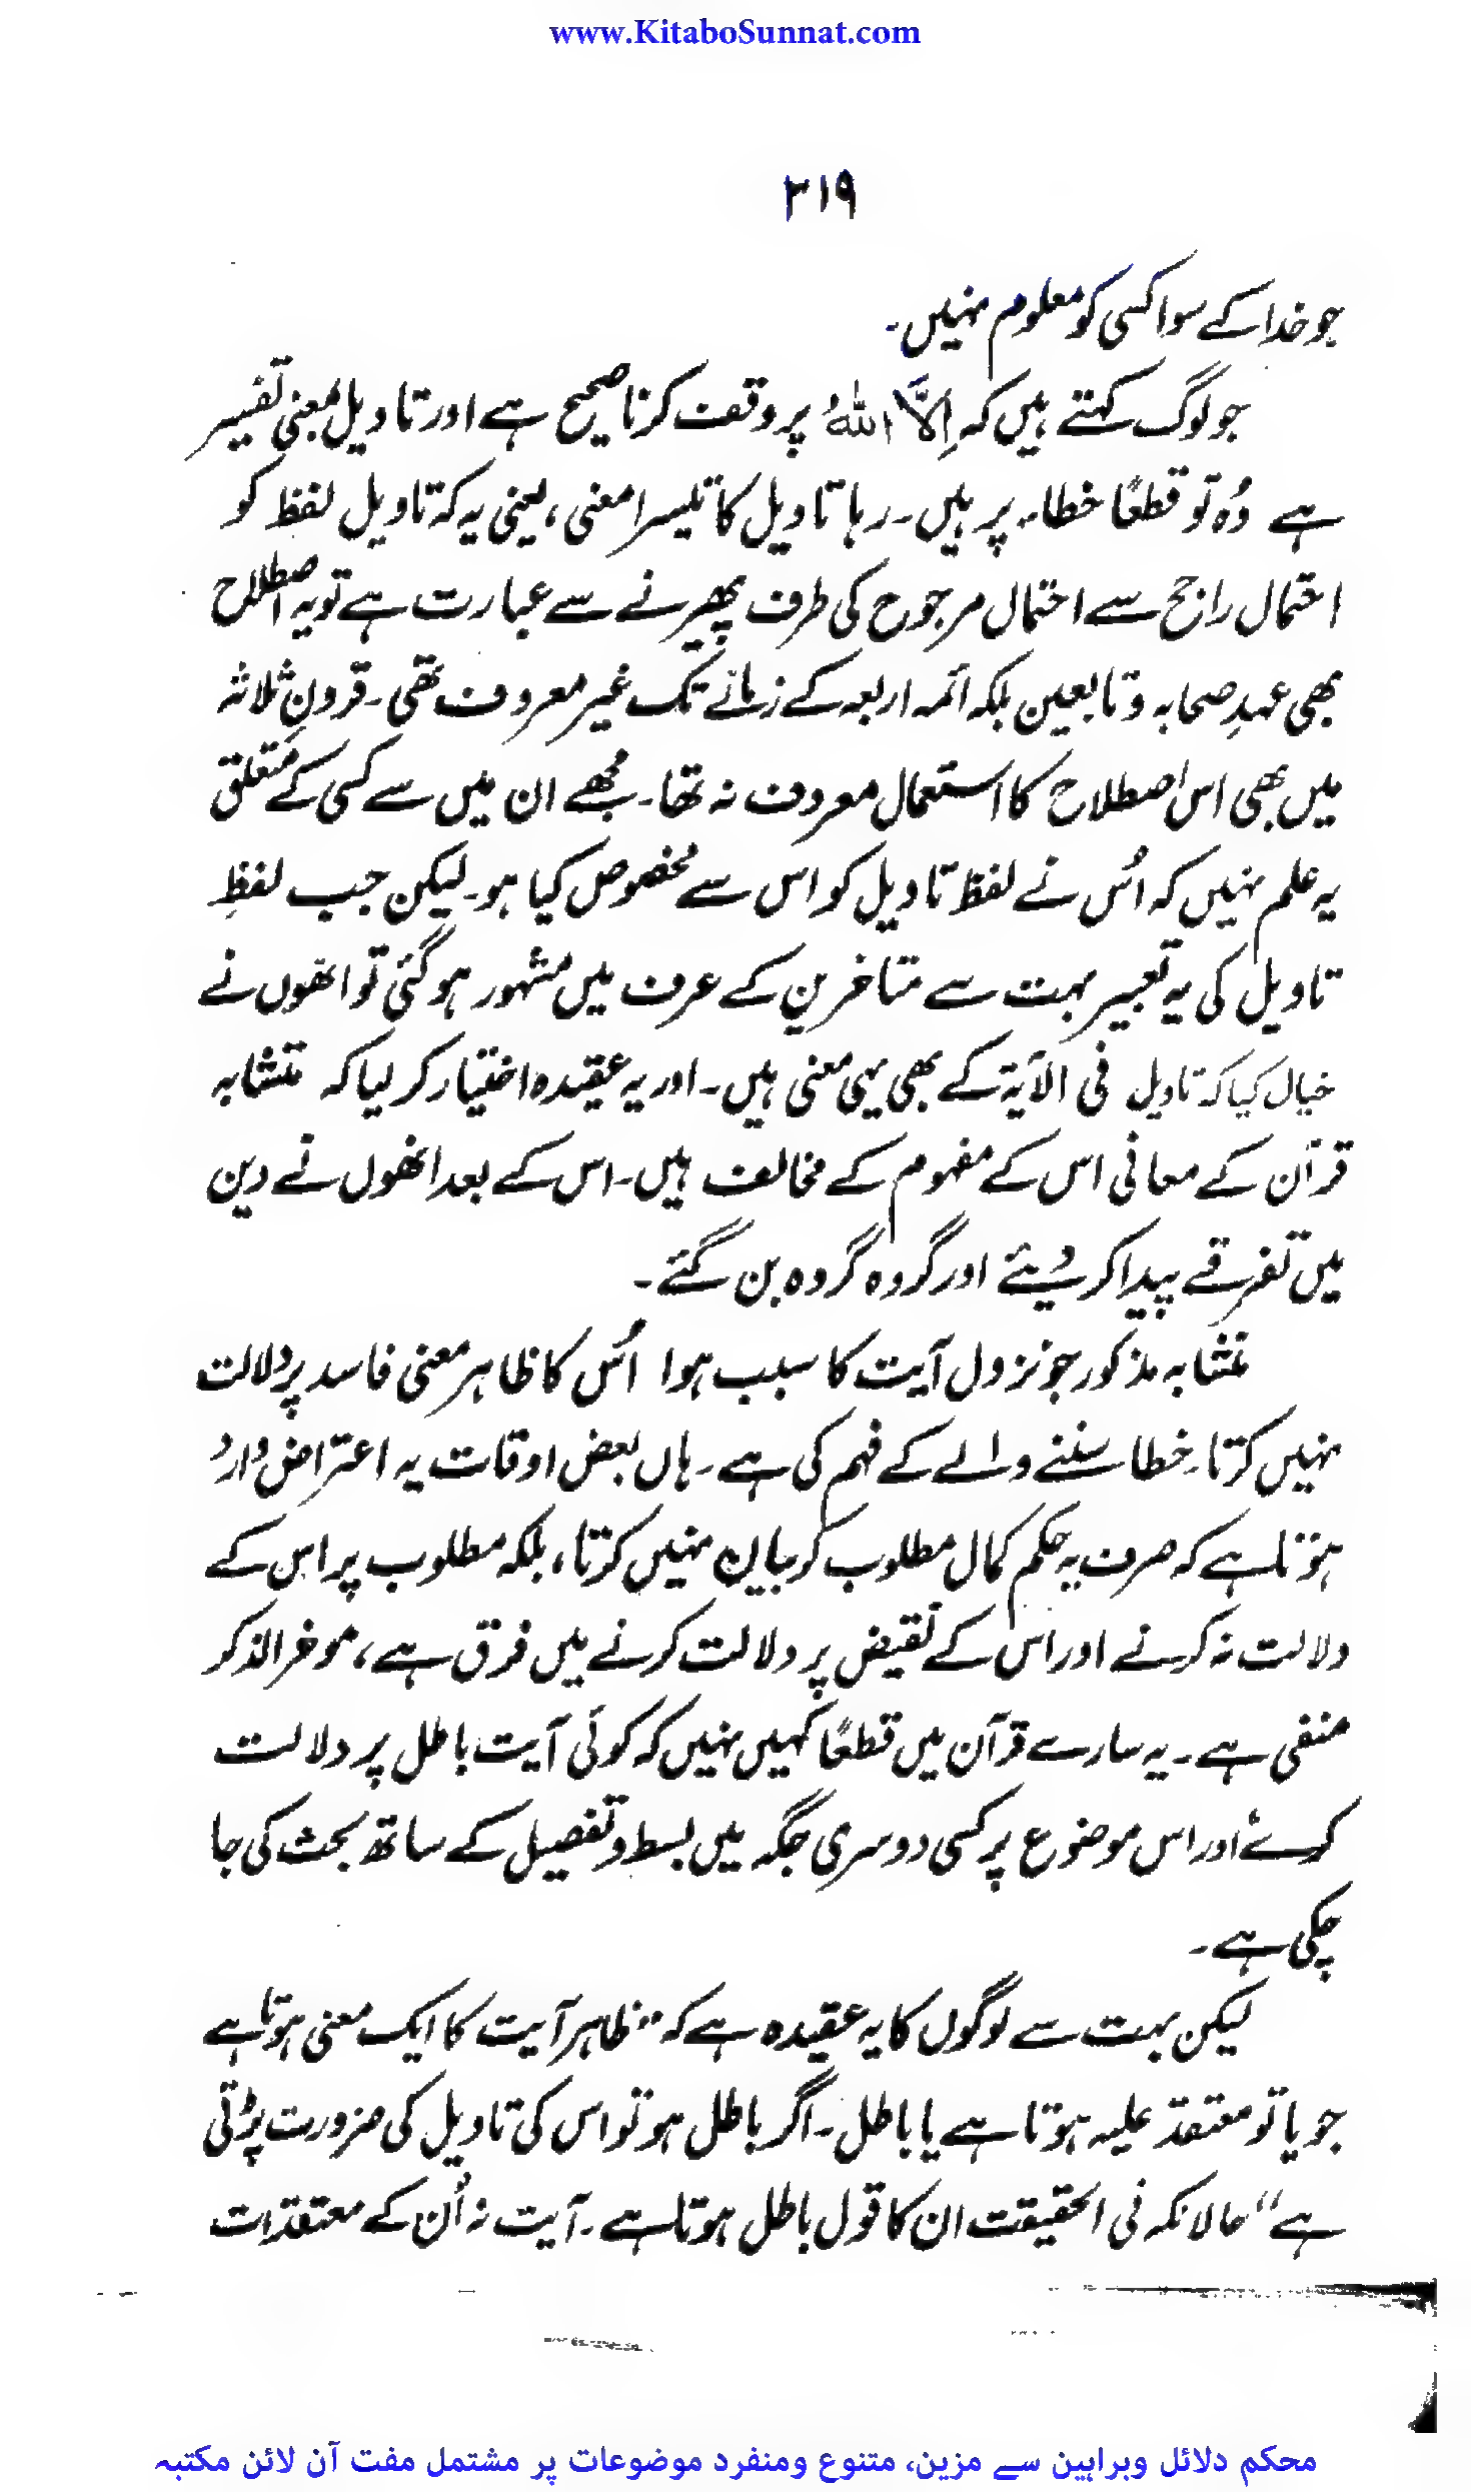 www.KitaboSunnat.com
۲۱۹
جو خدا کے سوا کسی کو معلوم نہیں۔
جو لوگ کہتے ہیں کہ اِلَّا اللّٰہُ پر وقف کرنا صحیح ہے اور تاویل بمعنی تفسیر
ہے وُہ تو قطعًا خطاء پر ہیں۔ رہا تاویل کا تیسرا معنی، یعنی یہ کہ تاویل لفظ کو
احتمال راجح سے احتمال مرجوح کی طرف پھیرنے سے عبارت ہے تو یہ اصطلاح
بھی عہدِ صحابہ و تابعین بلکہ ائمہ اربعہ کے زمانے تک غیر معروف تھی۔ قرونِ ثلاثہ
میں بھی اس اصطلاح کا استعمال معروف نہ تھا۔ مجُھے ان میں سے کسی کے متعلق
یہ علم نہیں کہ اُس نے لفظ تاویل کو اس سے مخصوص کیا ہو۔ لیکن جب لفظِ
تاویل کی یہ تعبیر بہت سے متاخرین کے عرف میں مشہور ہو گئی تو انھوں نے
خیال کیا کہ تاویل فی الآیۃ کے بھی یہی معنی ہیں۔ اور یہ عقیدہ اختیار کر لیا کہ متشابہ
قرآن کے معانی اس کے مفہوم کے مخالف ہیں۔ اس کے بعد انھوں نے دین
میں تفرقے پیدا کر دیئے اور گروہ گروہ بن گئے۔
متشابہ مذکور جو نزول آیت کا سبب ہوا اُس کا ظاہر معنی فاسد پر دلالت
نہیں کرتا۔ خطا سننے والے کے فہم کی ہے۔ ہاں بعض اوقات یہ اعتراض وارد
ہوتا ہے کہ صرف یہ حکم کمال مطلوب کو بیان نہیں کرتا، بلکہ مطلوب پر اس کے
دلالت نہ کرنے اور اس کے نقیض پر دلالت کرنے میں فرق ہے، موخر الذکر
منفی ہے۔ یہ سارے قرآن میں قطعًا کہیں نہیں کہ کوئی آیت باطل پر دلالت
کرے اور اس موضوع پر کسی دوسری جگہ میں بسط و تفصیل کے ساتھ بحث کی جا
چکی ہے۔
لیکن بہت سے لوگوں کا یہ عقیدہ ہے کہ ”ظاہر آیت کا ایک معنی ہوتا ہے
جو یا تو معتقد علیہ ہوتا ہے یا باطل۔ اگر باطل ہو تو اس کی تاویل کی ضرورت پڑتی
ہے“ حالانکہ فی الحقیقت ان کا قول باطل ہوتا ہے۔ آیت نہ اُن کے معتقدات
محکم دلائل وبراہین سے مزین، متنوع ومنفرد موضوعات پر مشتمل مفت آن لائن مکتبہ